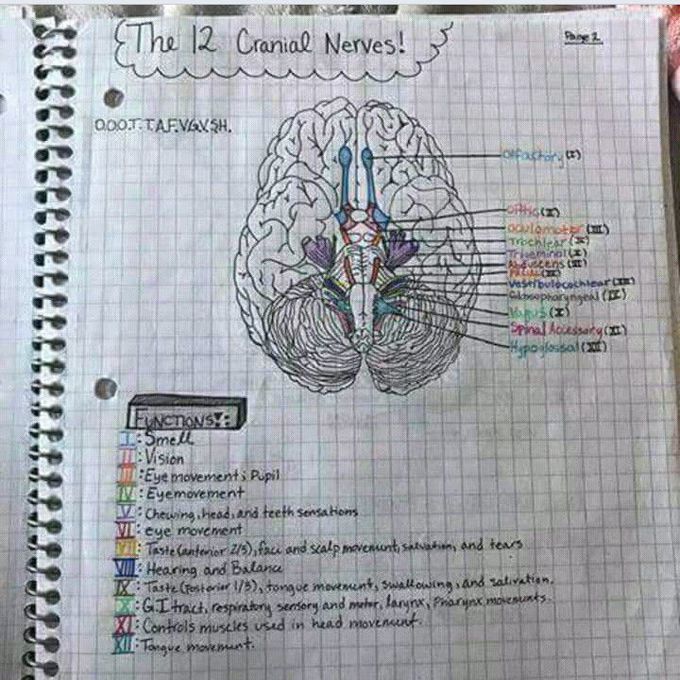 The 12 Cranial Nerves!
Page 2
O.O.O.T.T.A.F.V.G.V.S.H.
Olfactory (I)
Optic (II)
Oculomotor (III)
Trochlear
Trigeminal
Abducens
Facial
Vestibulocochlear
Glossopharyngeal (IX)
Vagus (X)
Spinal Accessory (XI)
Hypoglossal (XII)
FUNCTIONS!:
I: Smell
II: Vision
III: Eye movement; Pupil
IV: Eyemovement
V: Chewing, head, and teeth sensations
VI: eye movement
VII: Taste (anterior 2/3), face and scalp movement, salivation, and tears
VIII: Hearing and Balance
IX: Taste (Posterior 1/3), tongue movement, swallowing, and salivation.
X: G.I tract, respiratory sensory and motor, larynx, Pharynx movements.
XI: Controls muscles used in head movement.
XII: Tongue movement.